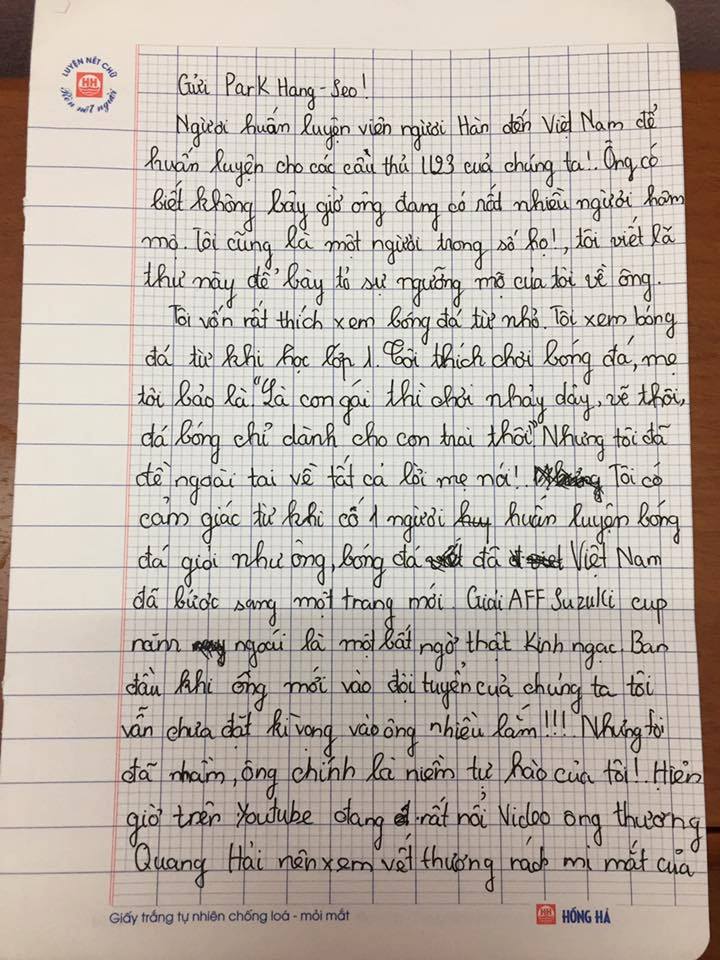 LUYỆN NÉT CHỮ
HH
Rèn nết người
Gửi Park Hang-Seo!
Người huấn luyện viên người Hàn đến Việt Nam để
huấn luyện cho các cầu thủ U23 cuả chúng ta!. Ông có
biết không bây giờ ông đang có rất nhiều người hâm
mộ. Tôi cũng là một người trong số họ!, tôi viết lá
thư này để bày tỏ sự ngưỡng mộ của tôi về ông.
Tôi vốn rất thích xem bóng đá từ nhỏ. Tôi xem bóng
đá từ khi học lớp 1. Tôi thích chơi bóng đá, mẹ
tôi bảo là "Là con gái thì chơi nhảy dây, vẽ thôi,
đá bóng chỉ dành cho con trai thôi" Nhưng tôi đã
để ngoài tai về tất cả lời mẹ nói! Tôi có
cảm giác từ khi có 1 người huấn luyện bóng
đá giỏi như ông, bóng đá đã Việt Nam
đã bước sang một trang mới. Giải AFF Suzuki cup
năm ngoái là một bất ngờ thật Kinh ngạc. Ban
đầu khi ông mới vào đội tuyển cuả chúng ta tôi
vẫn chưa đặt kì vọng vào ông nhiều lắm!!! Nhưng tôi
đã nhầm, ông chính là niềm tự hào của tôi!. Hiện
giờ trên Youtube đang rất nổi Video ong thương
Quang Hải nên xem vết thương rách mi mắt của
Giấy trắng tự nhiên chống loá - mỏi mắt
HH HỒNG HÀ